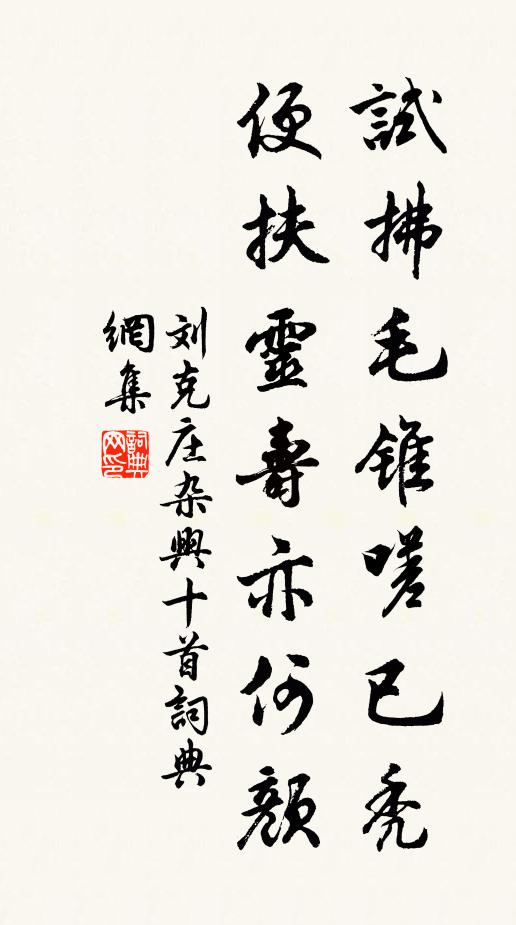 試拂毛錐嗟已秃
便扶靈壽亦何顔
刘克庄杂興十首詞典
網集
詞典网印